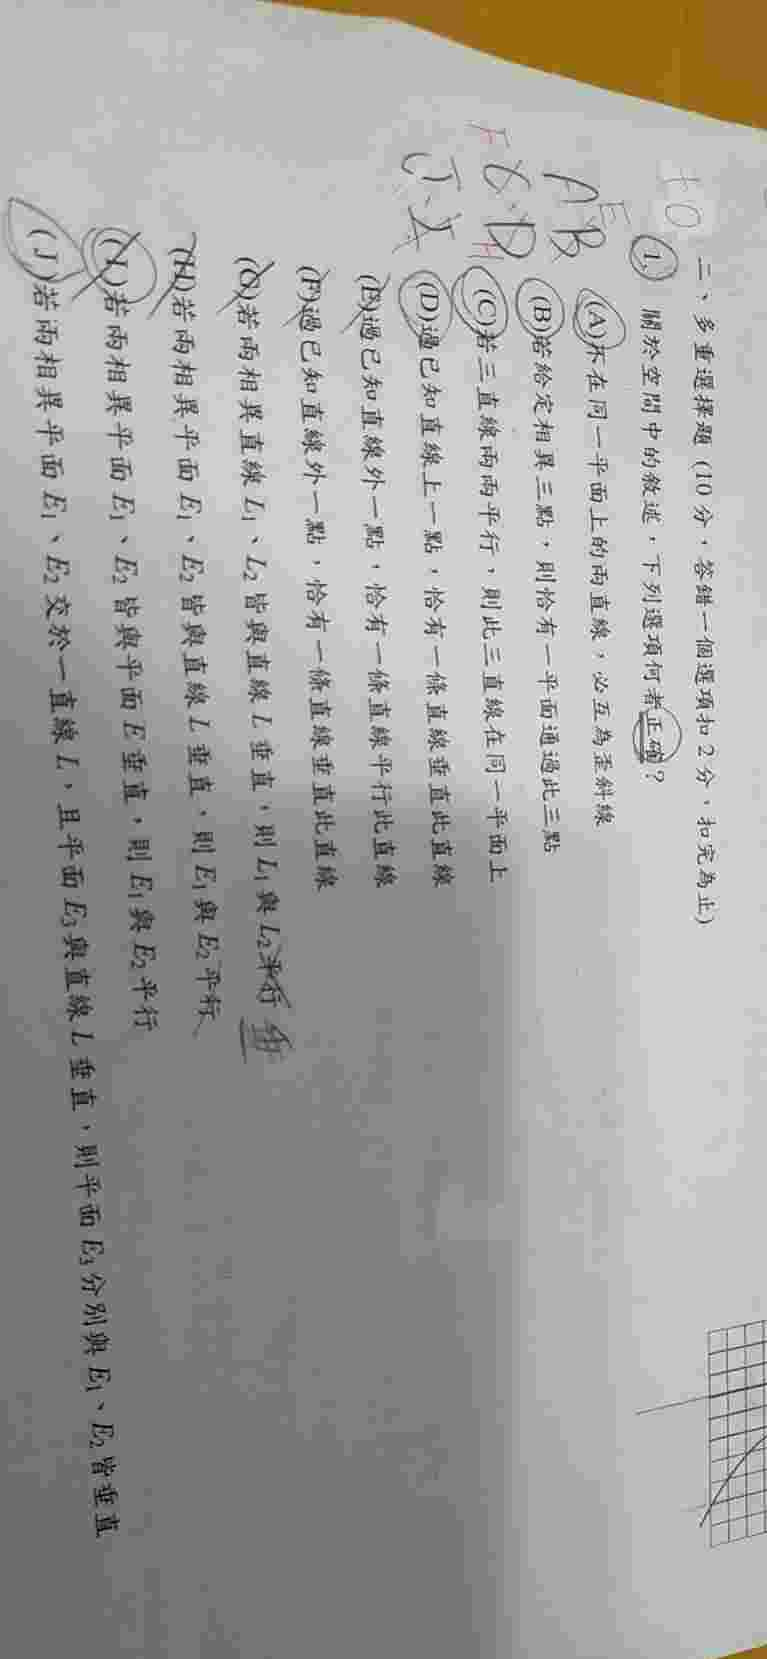 二、多重選擇題 (10分，答錯一個選項扣2分，扣完為止)
1. 關於空間中的敘述，下列選項何者正確？
(A)不在同一平面上的兩直線，必互為歪斜線
(B)若給定相異三點，則恰有一平面通過此三點
(C)若三直線兩兩平行，則此三直線在同一平面上
(D)過已知直線上一點，恰有一條直線垂直此直線
(E)過已知直線外一點，恰有一條直線平行此直線
(F)過已知直線外一點，恰有一條直線垂直此直線
(G)若兩相異直線 L₁、L₂ 皆與直線 L 垂直，則 L₁ 與 L₂ 平行
(H)若兩相異平面 E₁、E₂ 皆與直線 L 垂直，則 E₁ 與 E₂ 平行
(I)若兩相異平面 E₁、E₂ 皆與平面 E 垂直，則 E₁ 與 E₂ 平行
(J)若兩相異平面 E₁、E₂ 交於一直線 L，且平面 E₃ 與直線 L 垂直，則平面 E₃ 分別與 E₁、E₂ 皆垂直